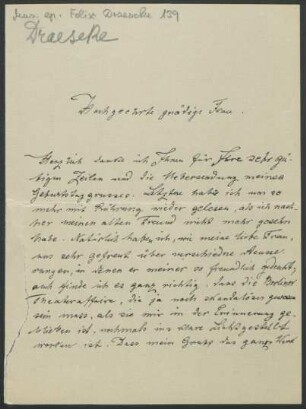 Mus. ep. Felix Draeseke 139
Draeseke
Hochgeehrte gnädige Frau.
Herzlich danke ich Ihnen für Ihre sehr gü-
tigen Zeilen und die Uebersendung meines
Geburtstagsgrusses. Letztren habe ich um so
mehr mit Rührung wieder gelesen, als ich nach-
her meinen alten Freund nicht mehr gesehen
habe. Natürlich habe ich, wie meine liebe Frau,
uns sehr gefreut über verschiedne Aeusse-
rungen, in denen er meiner so freundlich gedacht,
auch finde ich es ganz richtig, dass die Berliner
Theateraffaire, die ja noch skandalöser gewesen
sein muss, als sie mir in der Erinnerung ge-
blieben ist, nochmals ins klare Licht gestellt
worden ist. Dass mein Gruss das ganze Werk